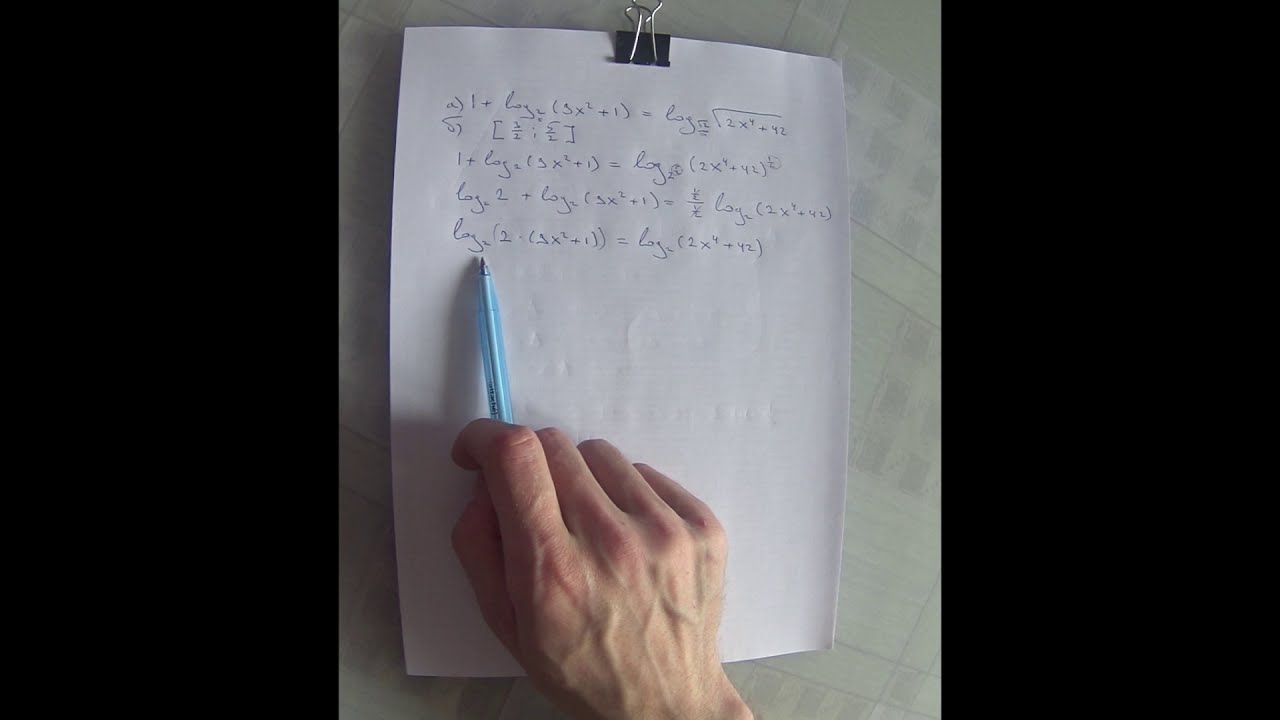 а) 1 + log₂(9x² + 1) = log_√2 √(2x⁴ + 42)
б) [3/2 ; 5/2]
1 + log₂(9x² + 1) = log_2^(1/2) (2x⁴ + 42)^(1/2)
log₂ 2 + log₂(9x² + 1) = (1/2)/(1/2) log₂(2x⁴ + 42)
log₂(2 · (9x² + 1)) = log₂(2x⁴ + 42)